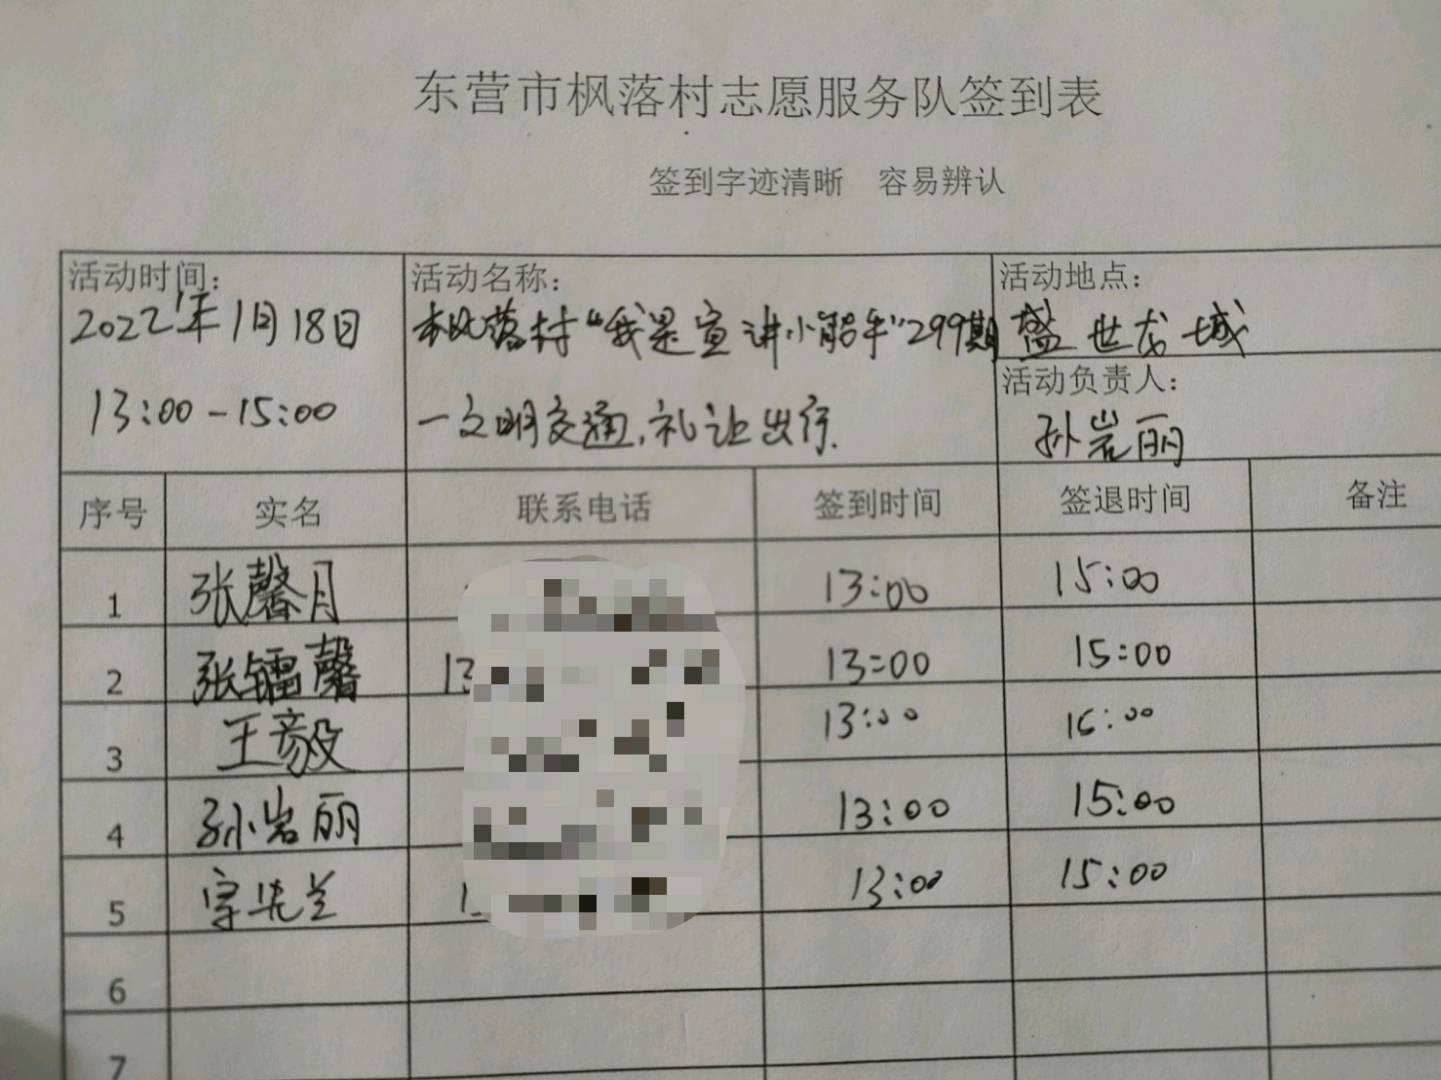 东营市枫落村志愿服务队签到表
签到字迹清晰 容易辨认
活动时间: 活动名称: 活动地点:
2022年1月18日 枫落村“我是宣讲小能手”299期 盛世龙城
活动负责人:
13:00-15:00 —文明交通,礼让出行. 孙岩丽
序号 实名 联系电话 签到时间 签退时间 备注
1 张馨月 13:00 15:00
2 张镭馨 13 13:00 15:00
3 王毅 13:00 15:00
4 孙岩丽 13:00 15:00
5 1 13:00 15:00
6
7